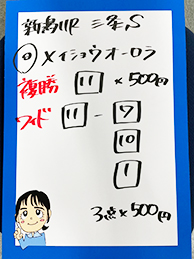 新潟11R 三条S
◎メイショウオーロラ
複勝 11 × 500円
ワイド 11 - 7
10
1
3点×500円